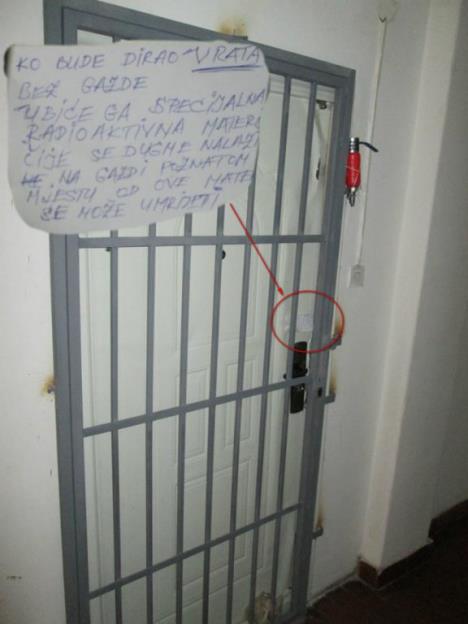 KO BUDE DIRAO VRATA
BEZ GAZDE
UBIĆE GA SPECIJALNA
RADIOAKTIVNA MATERI
ČIJE SE DUGME NALAZI
NE NA GAZDI POZNATOM
MJESTU OD OVE MATE
SE MOŽE UMRIJETI